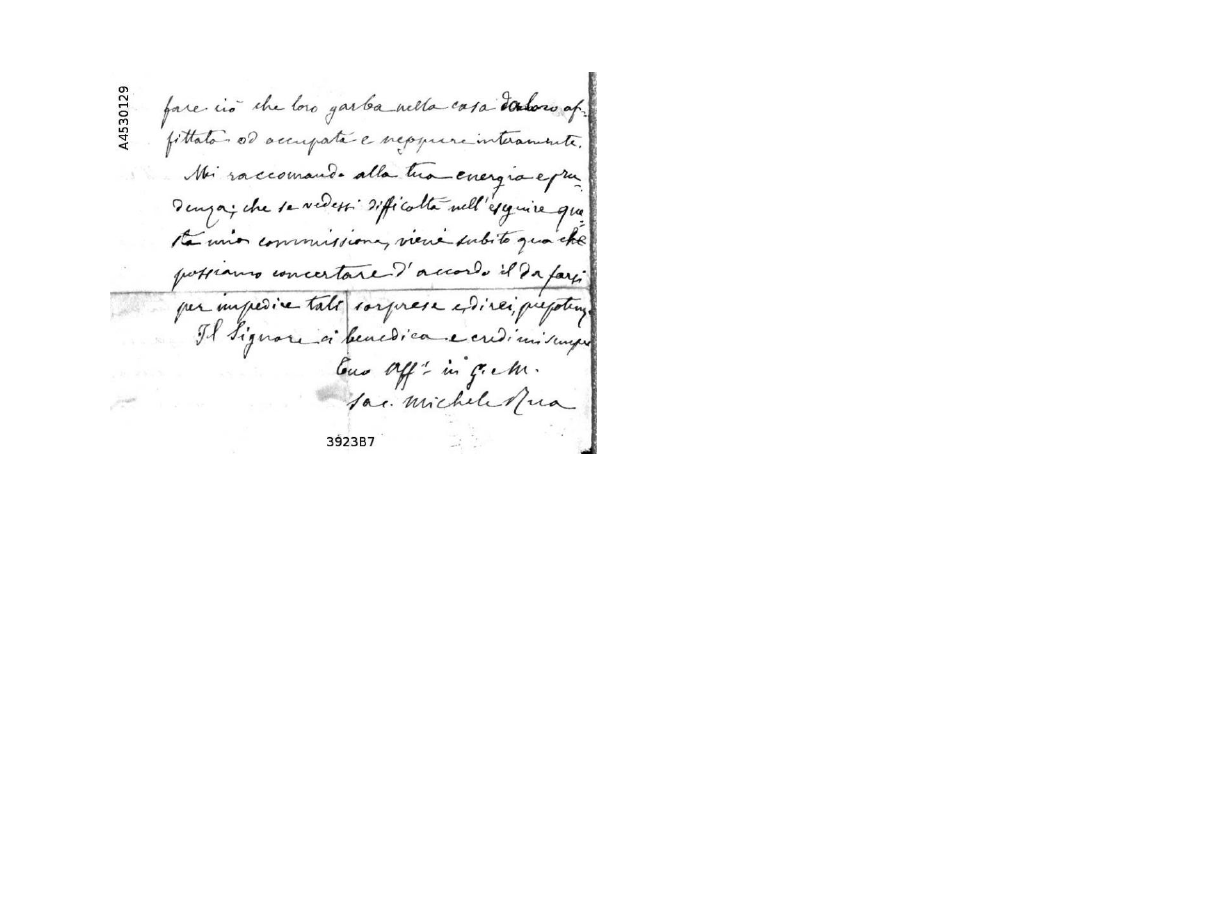 A4530129
fare ciò che loro garba nella casa da loro af-
fittata od occupata e neppure interamente.
Mi raccomando alla tua energia e pru-
denza; che se vedessi difficoltà nell'eseguire que=
sta mia commissione, vieni subito qua che
possiamo concertare d'accordo il da farsi
per impedire tali sorprese e, direi, prepotenz
Il Signore ci benedica e credimi sempre
Tuo Aff.º in G. e M.
Sac. Michele Rua
3923B7